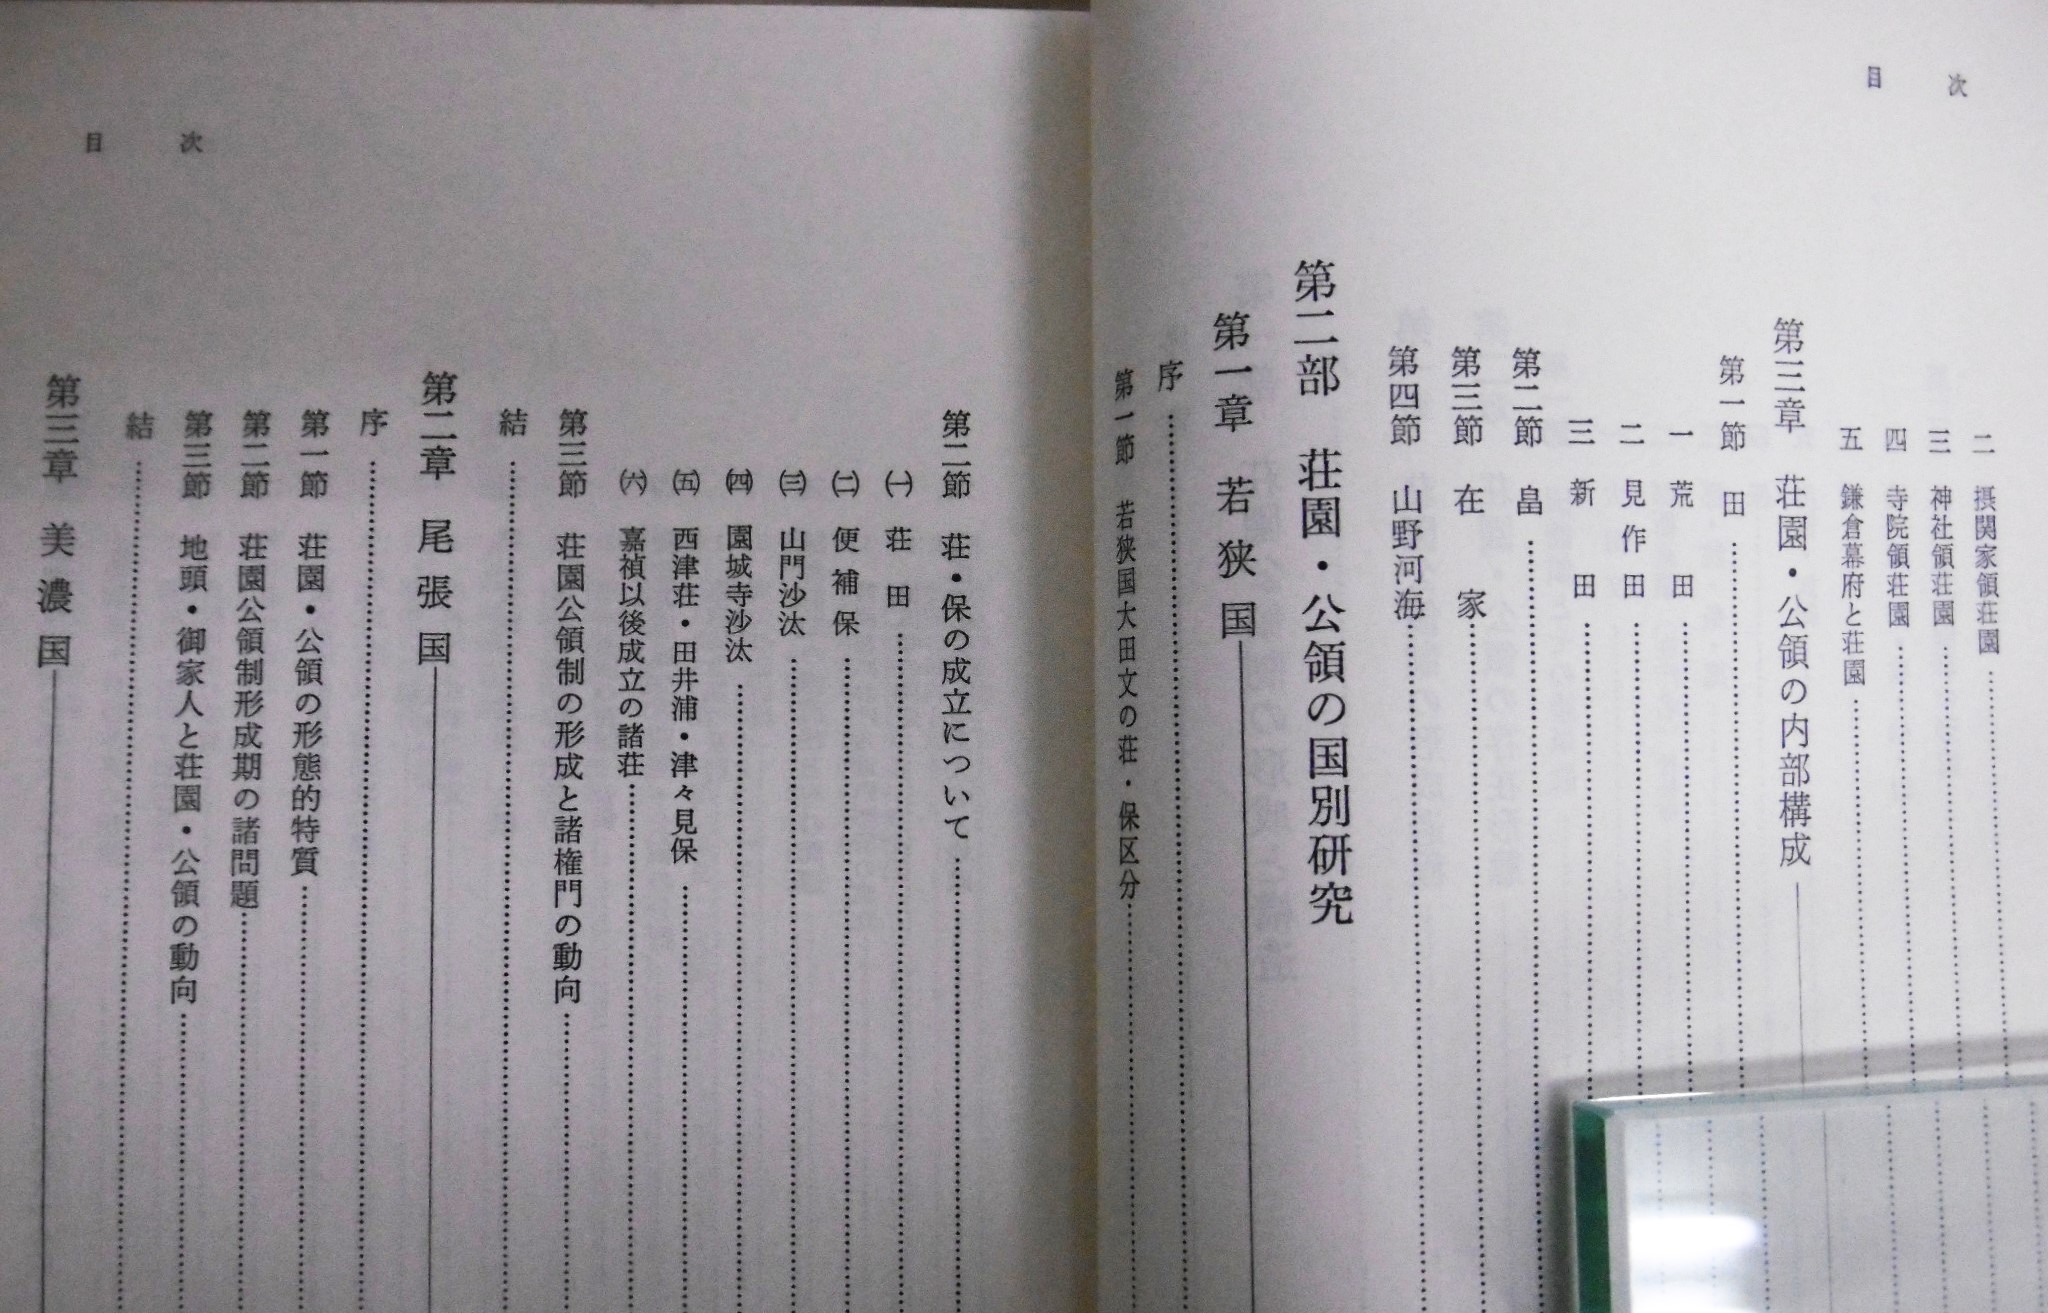 目次
二 摂関家領荘園
三 神社領荘園
四 寺院領荘園
五 鎌倉幕府と荘園
第三章 荘園・公領の内部構成
第一節 田
一 荒田
二 見作田
三 新田
第二節 畠
第三節 在家
第四節 山野河海
第二部 荘園・公領の国別研究
第一章 若狭国
序
第一節 若狭国大田文の荘・保区分
目次
第二節 荘・保の成立について
㈠ 荘田
㈡ 便補保
㈢ 山門沙汰
㈣ 園城寺沙汰
㈤ 西津荘・田井浦・津々見保
㈥ 嘉禎以後成立の諸荘
第三節 荘園公領制の形成と諸権門の動向
結
第二章 尾張国
序
第一節 荘園・公領の形態的特質
第二節 荘園公領制形成期の諸問題
第三節 地頭・御家人と荘園・公領の動向
結
第三章 美濃国